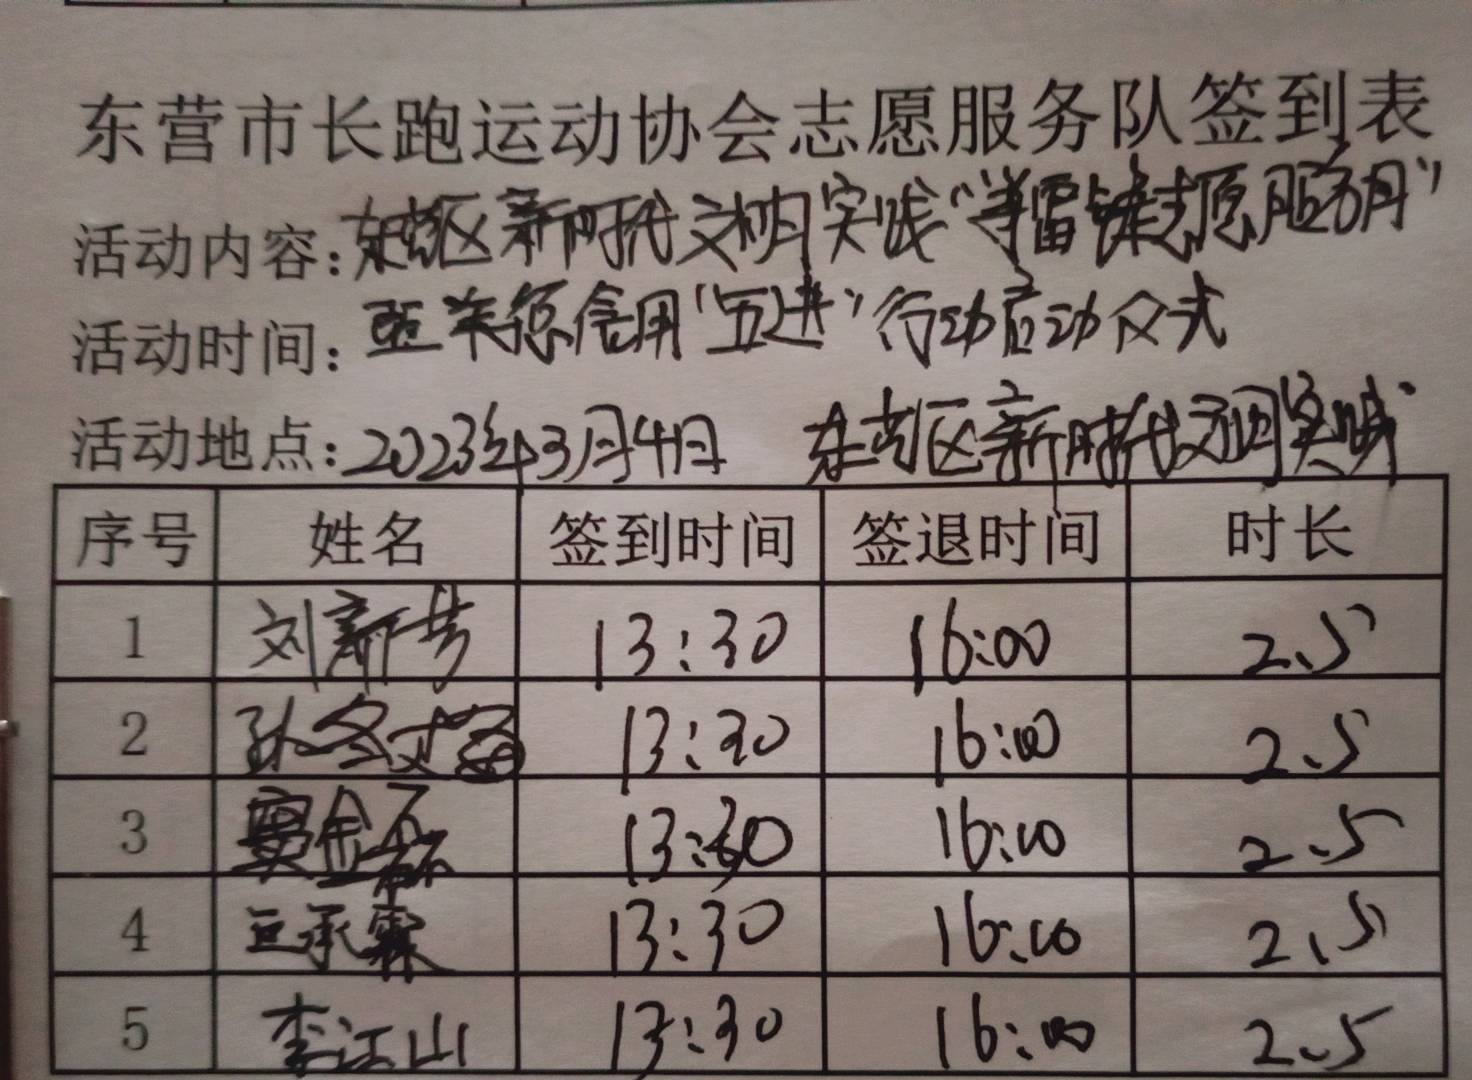 东营市长跑运动协会志愿服务队签到表
活动内容:东营区新时代文明实践“学雷锋志愿服务月”
活动时间:暨美德信用“五进”行动启动仪式
活动地点:2023年3月4日 东营区新时代文明实践
序号 姓名 签到时间 签退时间 时长
1 刘新芳 13:30 16:00 2.5
2 孙冬梅 13:30 16:00 2.5
3 窦金磊 13:30 16:00 2.5
4 王承霖 13:30 16:00 2.5
5 李江山 13:30 16:00 2.5